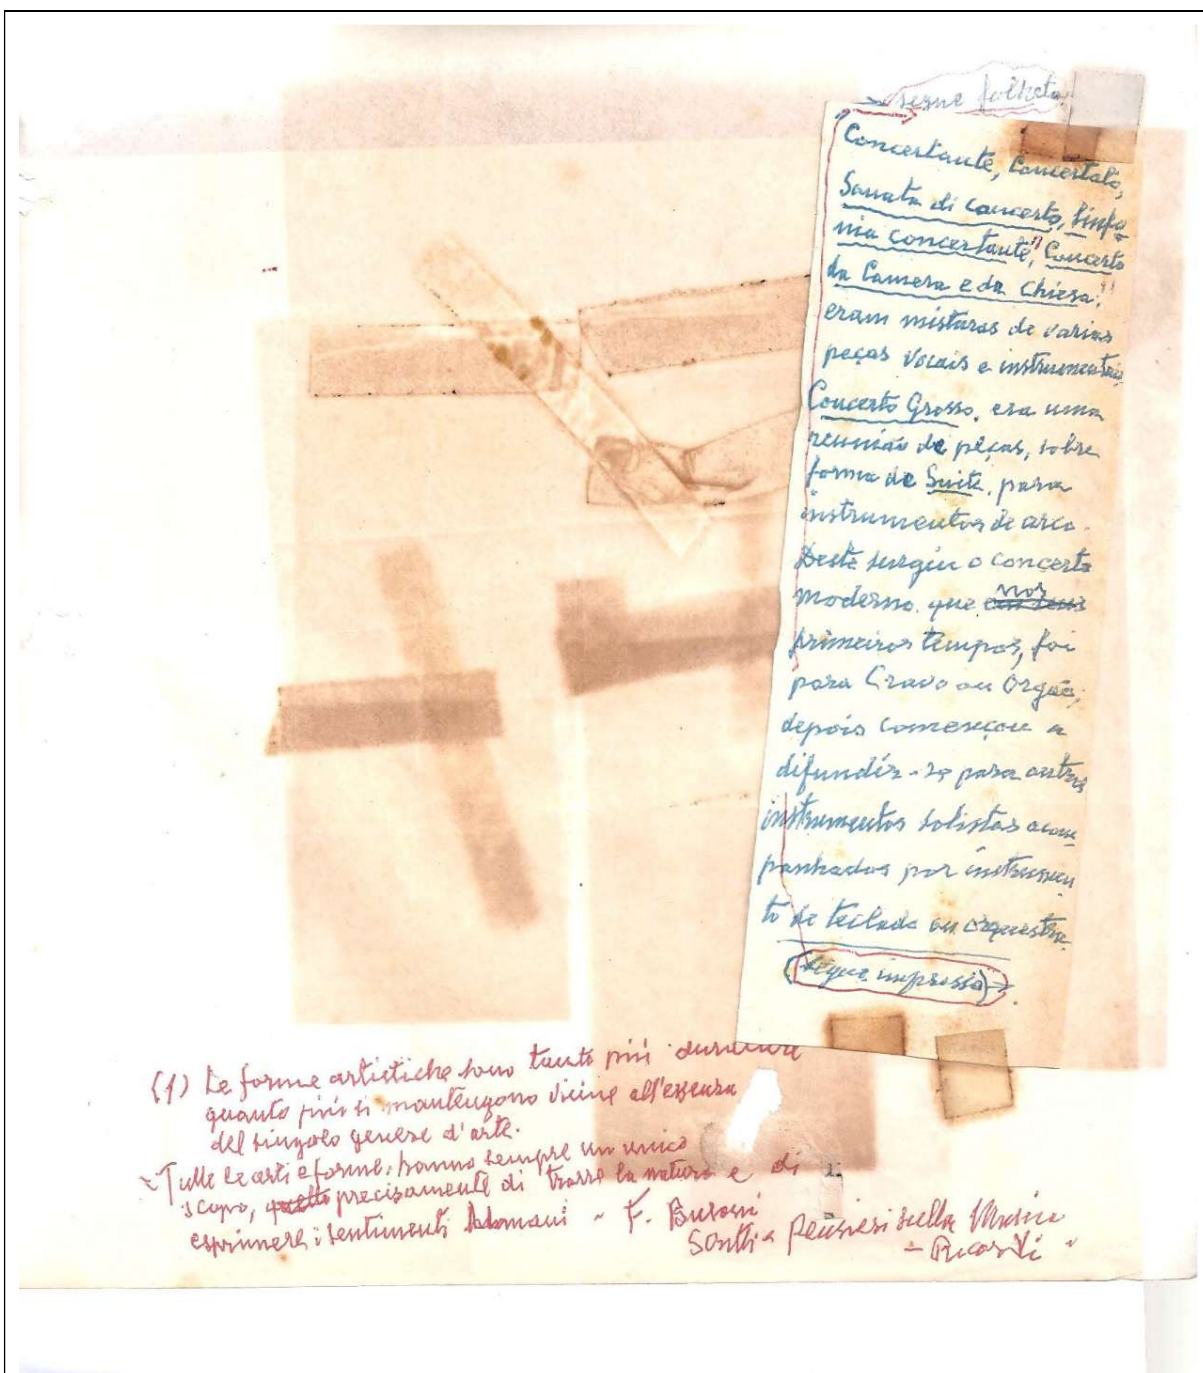 segue folheto
Concertante, Concertato,
Sonata di concerto, Sinfo
nia concertante", Concerto
da Camera e da Chiesa,"
eram misturas de varias
peças vocais e instrumentais
Concerto Grosso, era uma
reunião de peças, sobre
forma de Suite, para
instrumentos de arco.
Deste surgiu o concerto
moderno, que nos
primeiros tempos, foi
para Cravo ou Orgão,
depois comesçou a
difundir-se para outros
instrumentos solistas acom
panhados por instrumen
to de teclado ou orquestra
(segue impresso)→
(1) Le forme artistiche sono tanto più durature
quanto più si mantengono vicine all'essenza
del singolo genere d'arte.
Tutte le arti e forme, hanno sempre un unico
scopo, quello precisamente di trarre la natura e di
esprimere i sentimenti umani - F. Busoni
Scritti e Pensieri sulla Musica
- Ricordi "